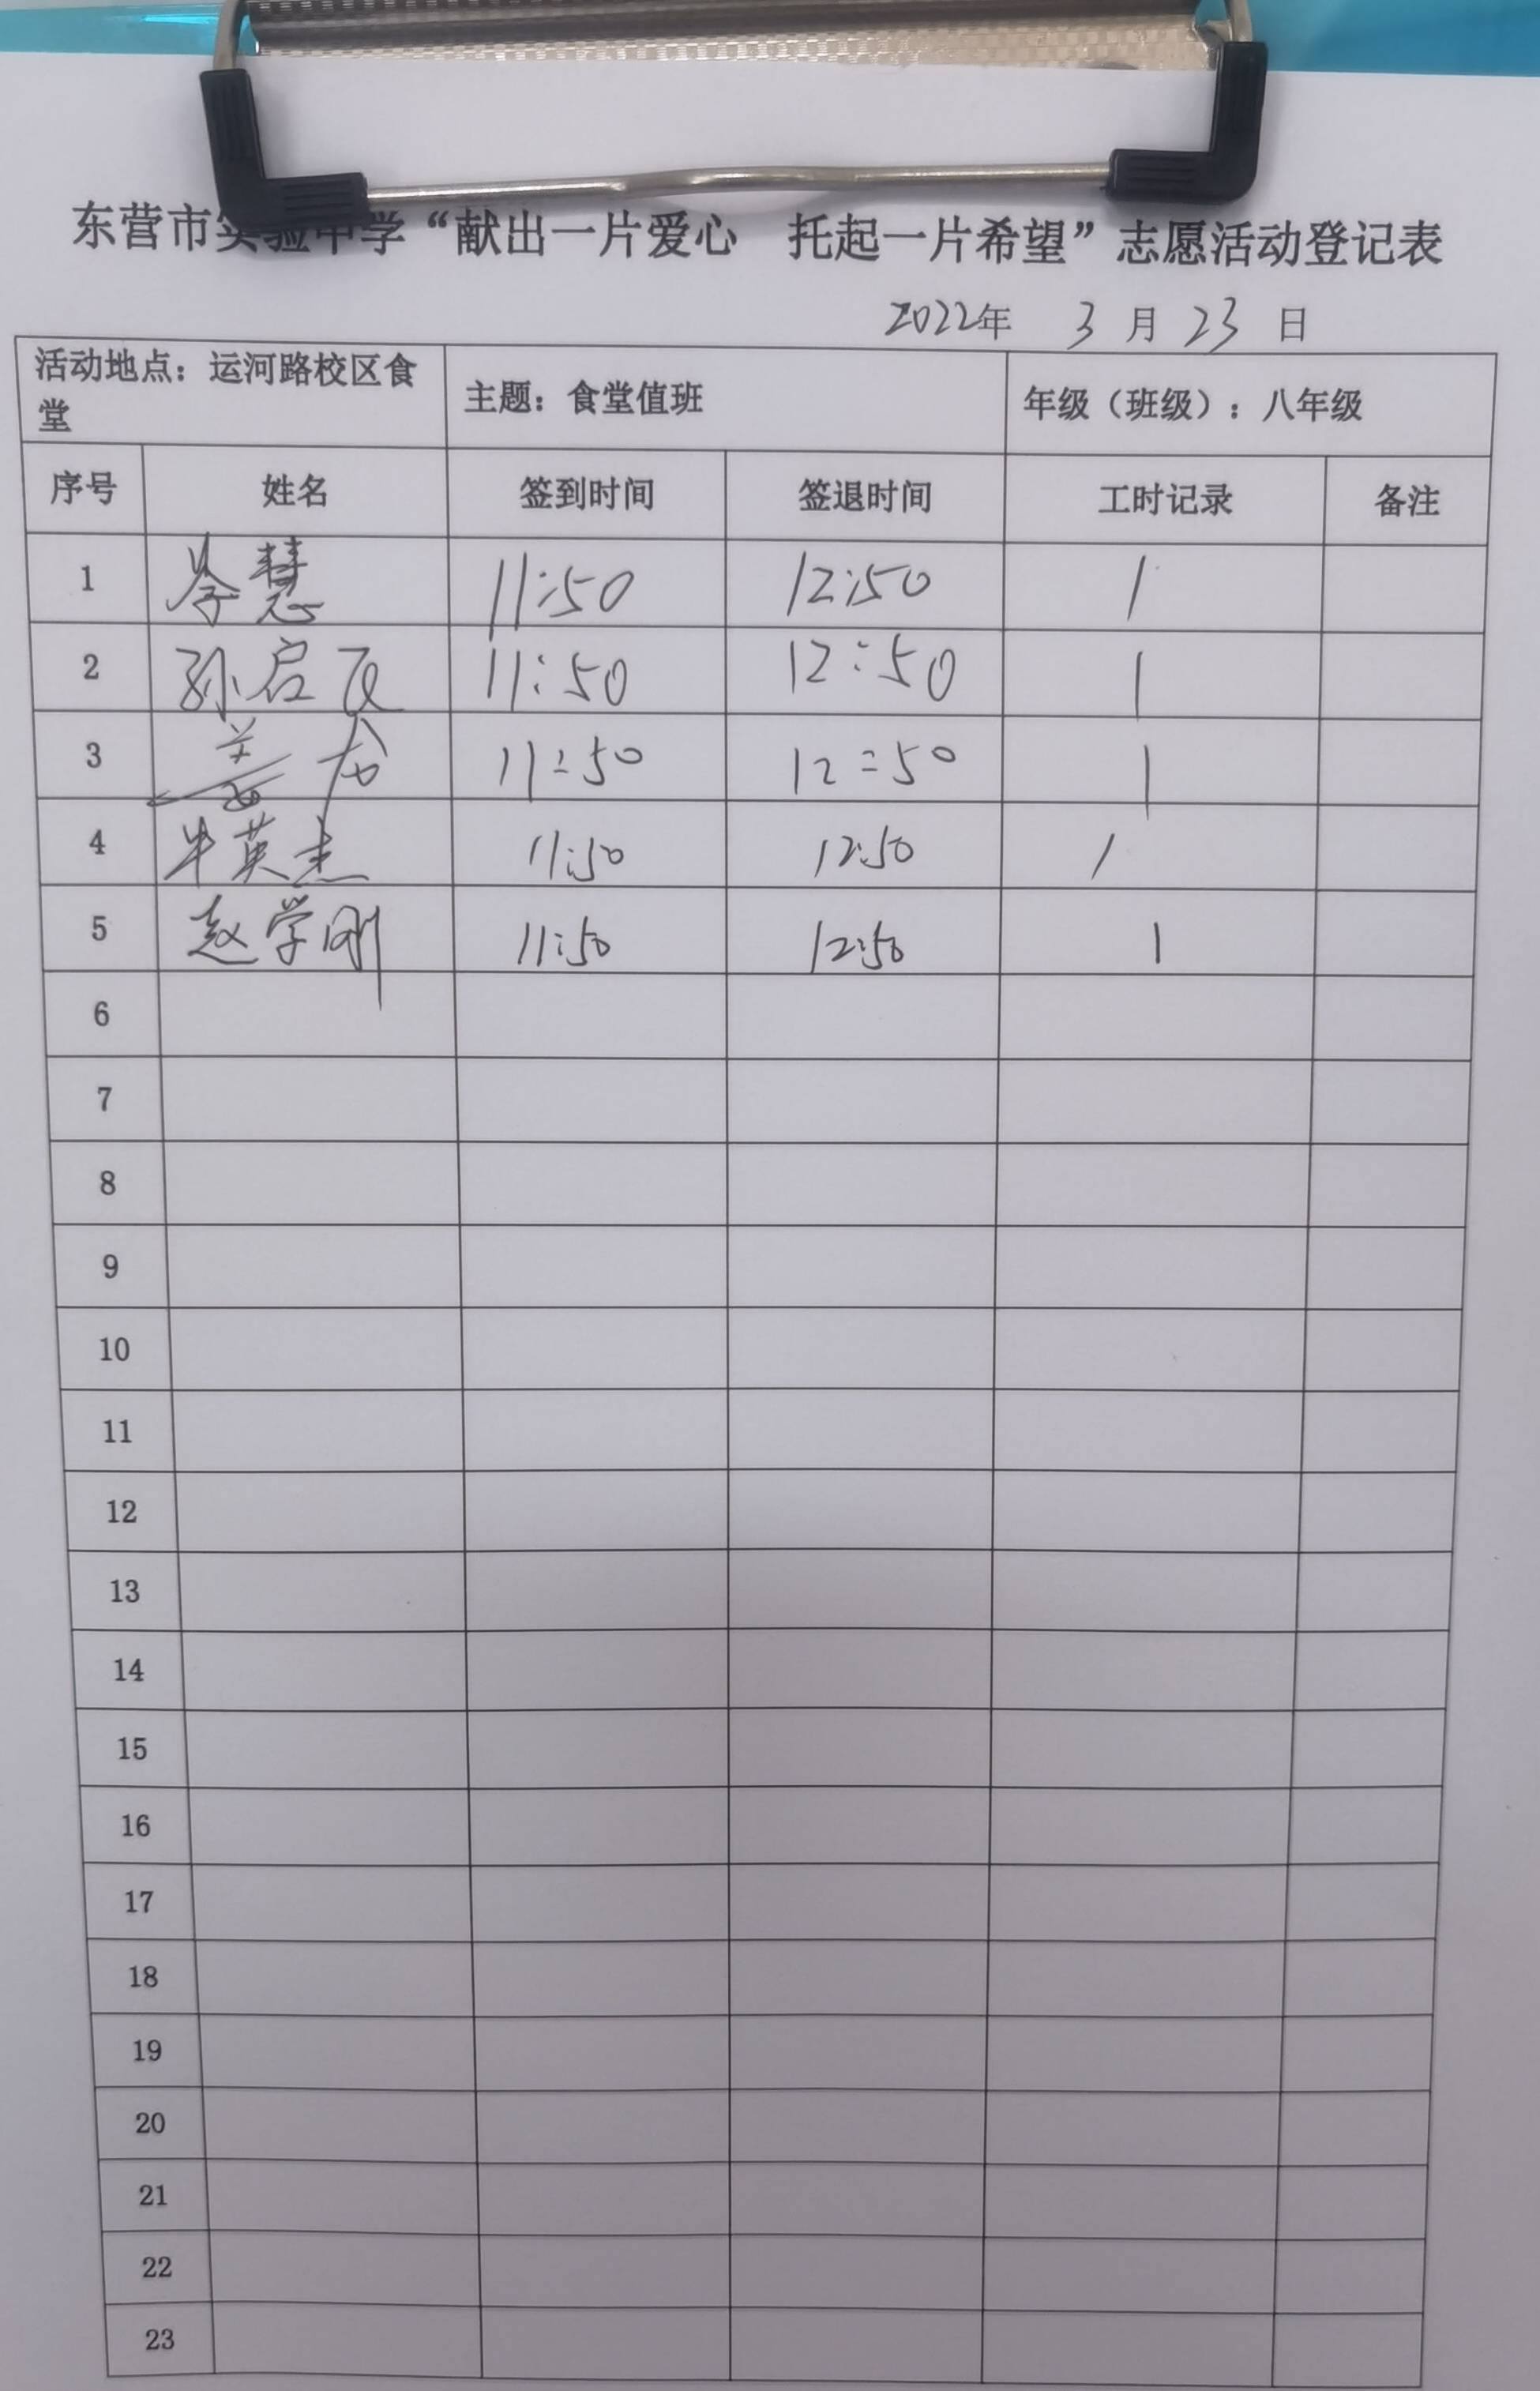 东营市实验中学“献出一片爱心 托起一片希望”志愿活动登记表
2022年 3 月 23 日
活动地点：运河路校区食堂 主题：食堂值班 年级（班级）：八年级
序号 姓名 签到时间 签退时间 工时记录 备注
1 李慧 11:50 12:50 1
2 孙启 11:50 12:50 1
3 11:50 12:50 1
4 牛英杰 11:50 12:50 1
5 赵学刚 11:50 12:50 1
6
7
8
9
10
11
12
13
14
15
16
17
18
19
20
21
22
23